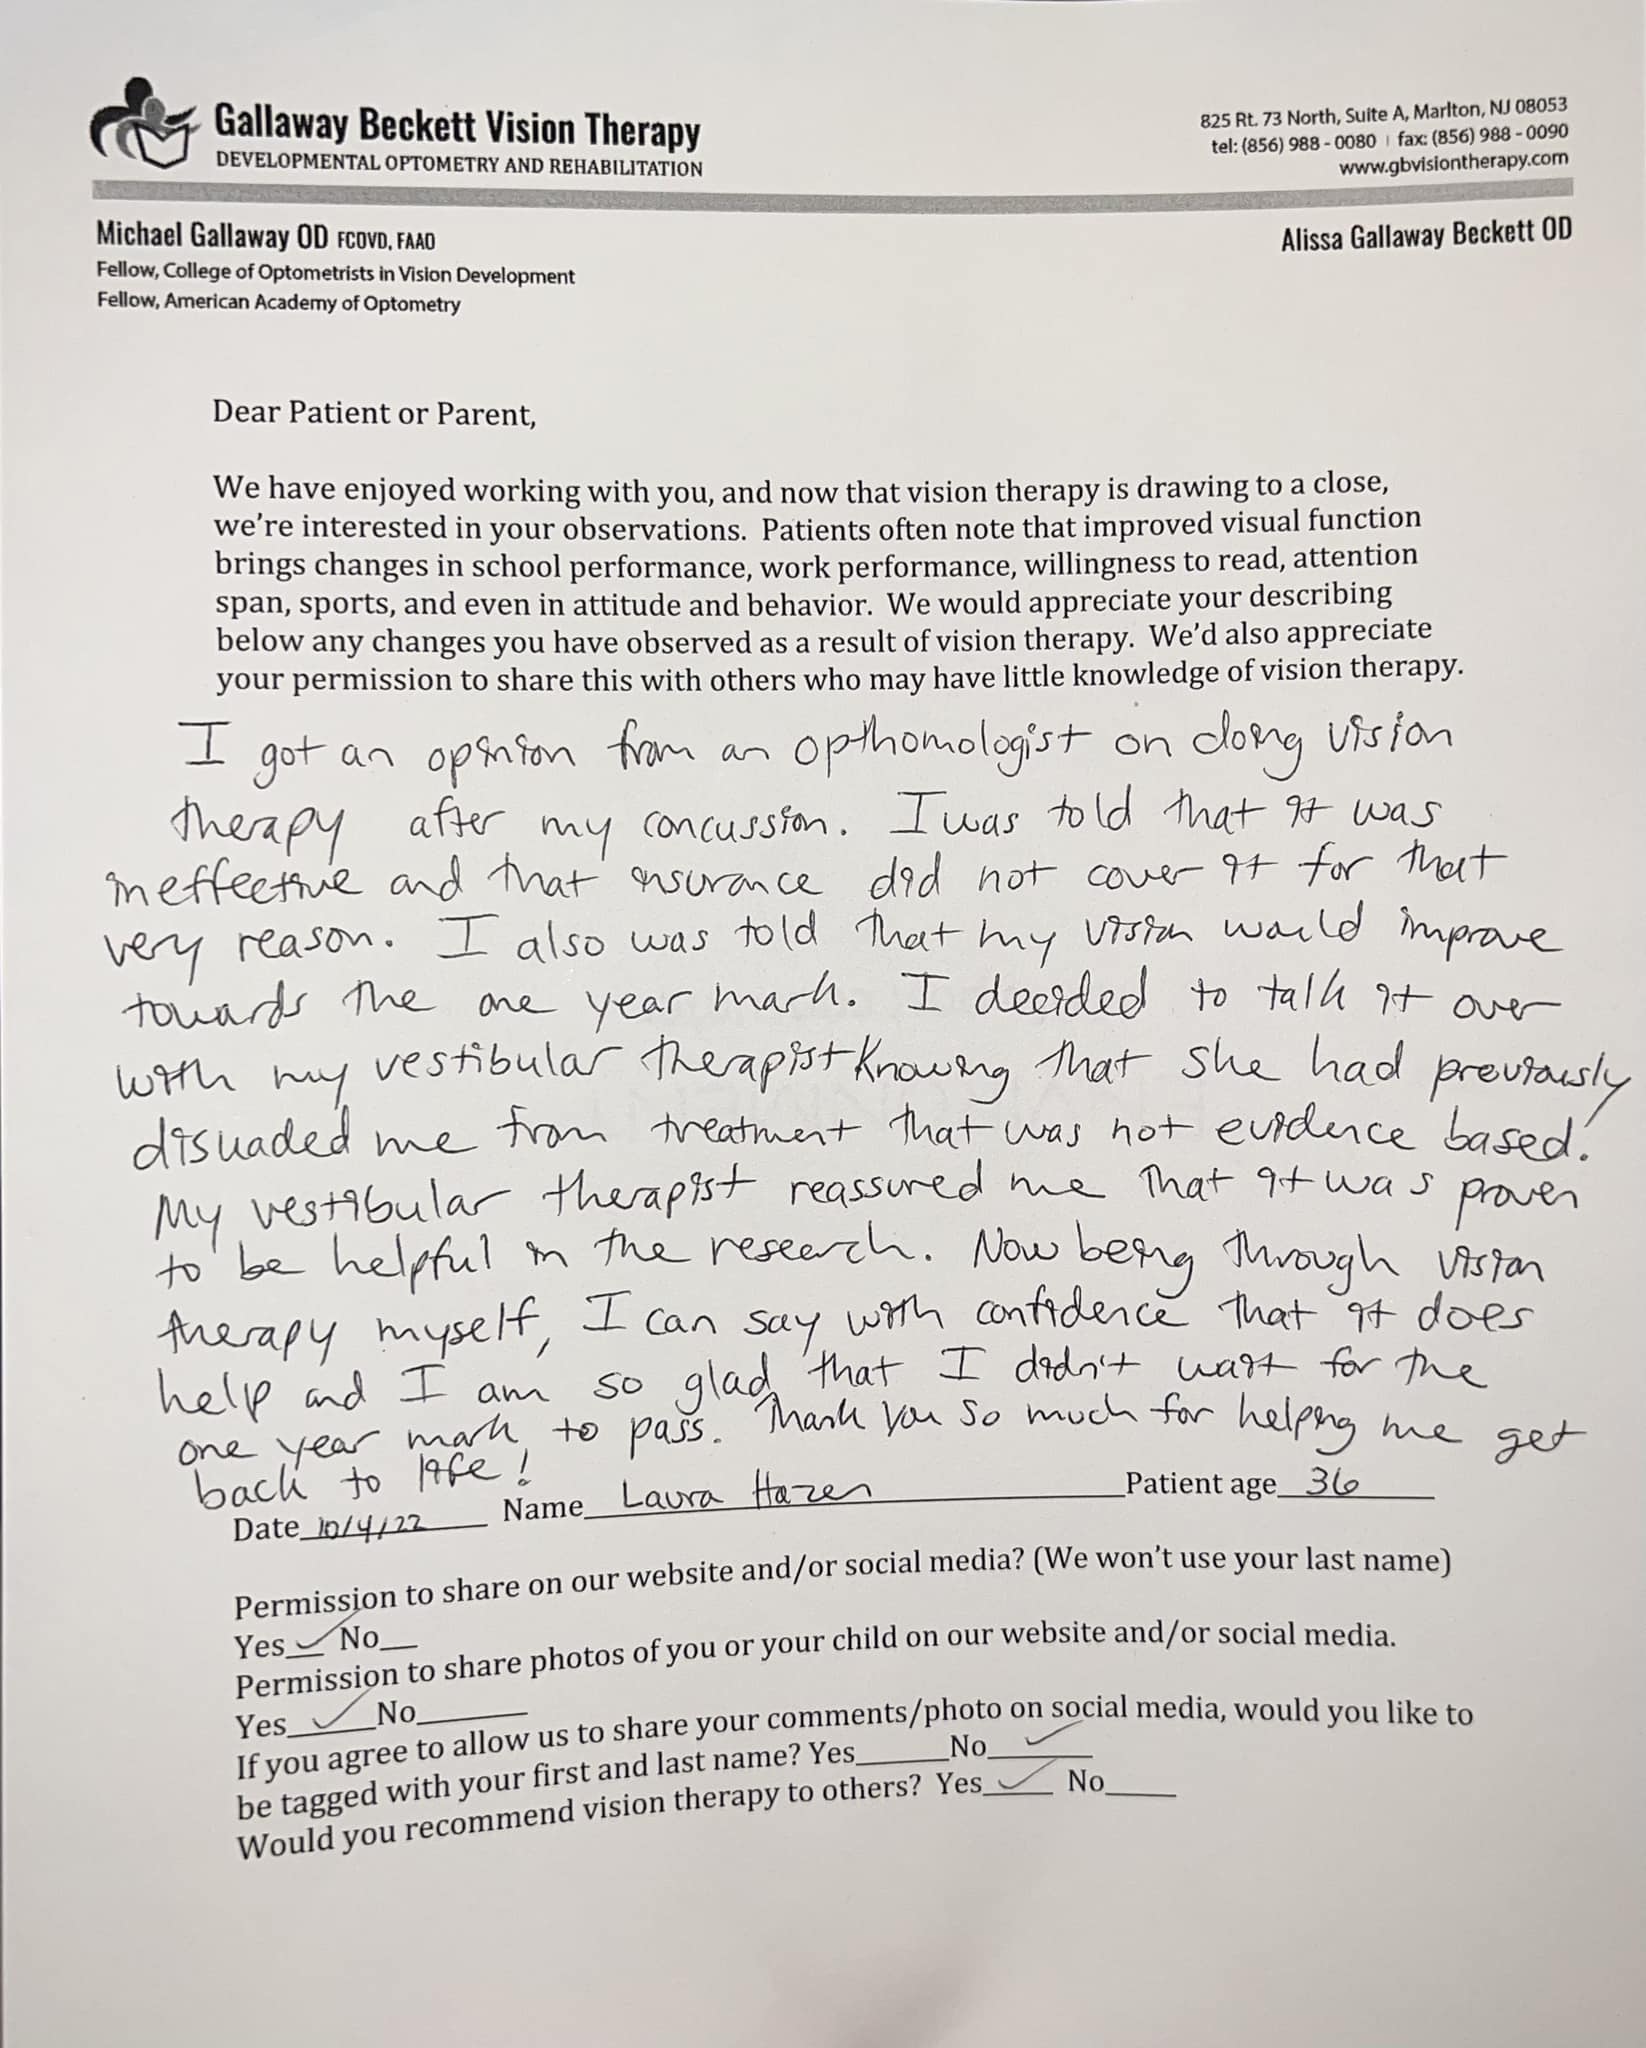 Gallaway Beckett Vision Therapy
DEVELOPMENTAL OPTOMETRY AND REHABILITATION
825 Rt. 73 North, Suite A, Marlton, NJ 08053
tel: (856) 988 - 0080 | fax: (856) 988 - 0090
www.gbvisiontherapy.com
Michael Gallaway OD FCOVD, FAAO
Fellow, College of Optometrists in Vision Development
Fellow, American Academy of Optometry
Alissa Gallaway Beckett OD
Dear Patient or Parent,
We have enjoyed working with you, and now that vision therapy is drawing to a close,
we're interested in your observations. Patients often note that improved visual function
brings changes in school performance, work performance, willingness to read, attention
span, sports, and even in attitude and behavior. We would appreciate your describing
below any changes you have observed as a result of vision therapy. We'd also appreciate
your permission to share this with others who may have little knowledge of vision therapy.
I got an opinion from an opthomologist on doing vision
therapy after my concussion. I was told that it was
ineffective and that insurance did not cover it for that
very reason. I also was told that my vision would improve
towards the one year mark. I decided to talk it over
with my vestibular therapist knowing that she had previously
disuaded me from treatment that was not evidence based.
My vestibular therapist reassured me that it was proven
to be helpful in the research. Now being through vision
therapy myself, I can say with confidence that it does
help and I am so glad that I didn't wait for the
one year mark to pass. Thank you so much for helping me get
back to life!
Date 10/4/22 Name Laura Hazen Patient age 36
Permission to share on our website and/or social media? (We won't use your last name)
Yes ✓ No
Permission to share photos of you or your child on our website and/or social media.
Yes ✓ No
If you agree to allow us to share your comments/photo on social media, would you like to
be tagged with your first and last name? Yes No ✓
Would you recommend vision therapy to others? Yes ✓ No